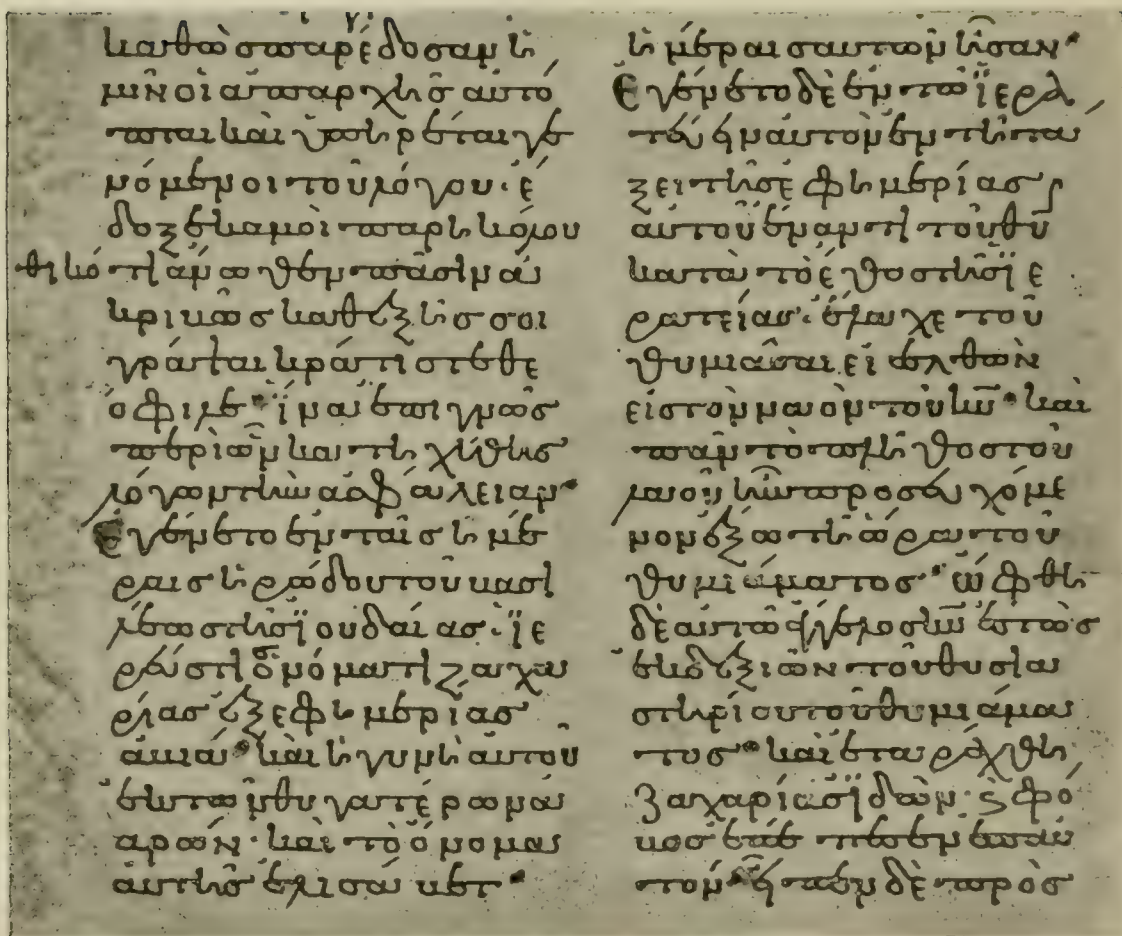 καθὼς παρέδοσαν ἡ
μῖν οἱ ἀπαρχῆς αὐτό
πται καὶ ὑπηρέται γε
νόμενοι τοῦ λόγου· ἔ
δοξε καμοὶ παρηκολου
θηκότι ἄνωθεν πᾶσιν ἀ
κριβῶς καθεξῆς σοι
γράψαι κράτιστε θε
όφιλε· ἵνα ἐπιγνῶς
περὶ ὧν κατηχήθης
λόγων τὴν ἀσφάλειαν·
Ἐγένετο ἐν ταῖς ἡμέ
ραις ἡρώδου τοῦ βασι
λέως τῆς ϊουδαίας· ϊε
ρεύς τις ὀνόματι ζαχα
ρίας ἐξ ἐφημερίας
ἀβιά· καὶ ἡ γυνὴ αὐτοῦ
ἐκ τῶν θυγατέρων ἀ
αρών· καὶ τὸ ὄνομα
αὐτῆς ἐλισάβετ·
ἡμέραις αὐτῶν ἦσαν·
Ἐγένετο δὲ ἐν τῶ ϊερα
τεύειν αὐτὸν ἐν τῆ τά
ξει τῆς ἐφημερίας
αὐτοῦ ἔναντι τοῦ θ̅υ̅
κατὰ τὸ ἔθος τῆς ϊε
ρατείας· ἔλαχε τοῦ
θυμιᾶσαι εἰσελθὼν
εἰς τὸν ναὸν τοῦ κ̅υ̅· καὶ
πᾶν τὸ πλῆθος τοῦ
λαοῦ ἦν προσευχόμε
νον ἔξω τῆ ὥρα τοῦ
θυμιάματος· ὤφθη
δὲ αὐτῶ ἄγγελος κ̅υ̅ ἑστὼς
ἐκ δεξιῶν τοῦ θυσια
στηρίου τοῦ θυμιάμα
τος· καὶ ἐταράχθη
ζαχαρίας ϊδὼν· ϗ φό
βος ἐπέπεσεν ἐπαυ
τόν· εἶπεν δὲ πρὸς